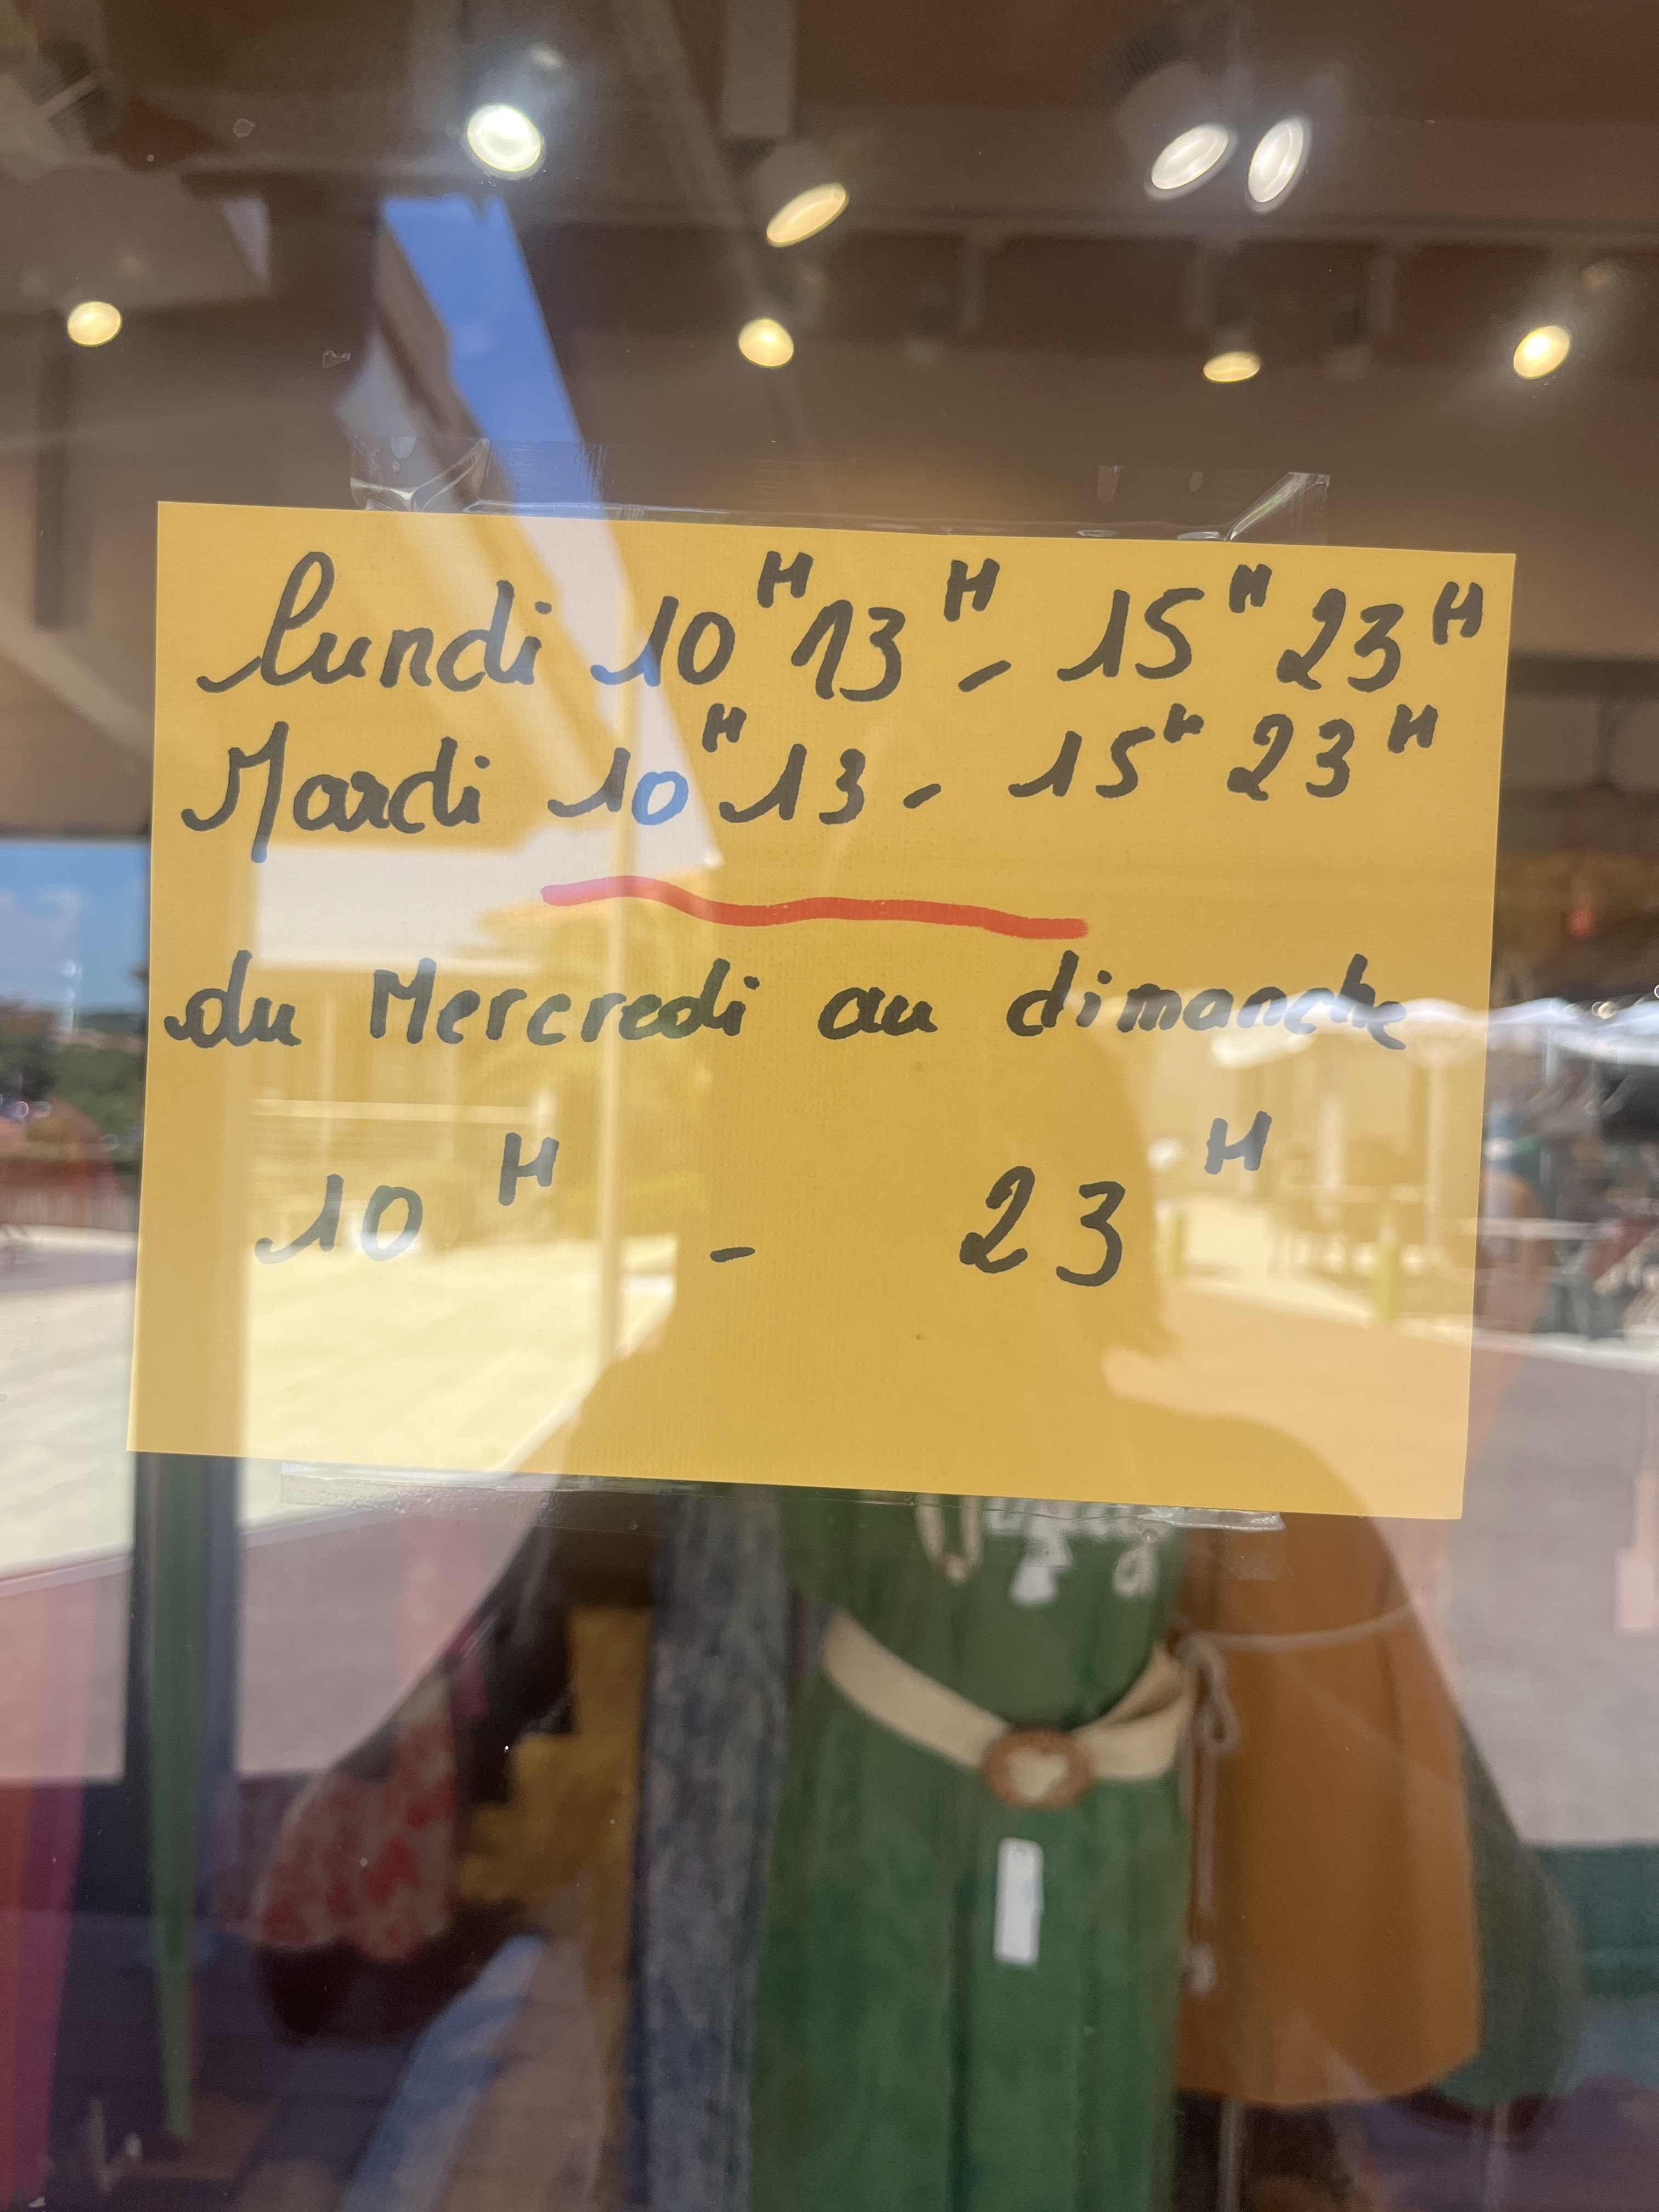 lundi 10H 13H - 15H 23H
Mardi 10H 13 - 15H 23H
du Mercredi au dimanche
10H - 23H